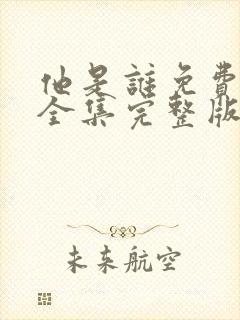 他是誰免費
全集完整版
未来航空